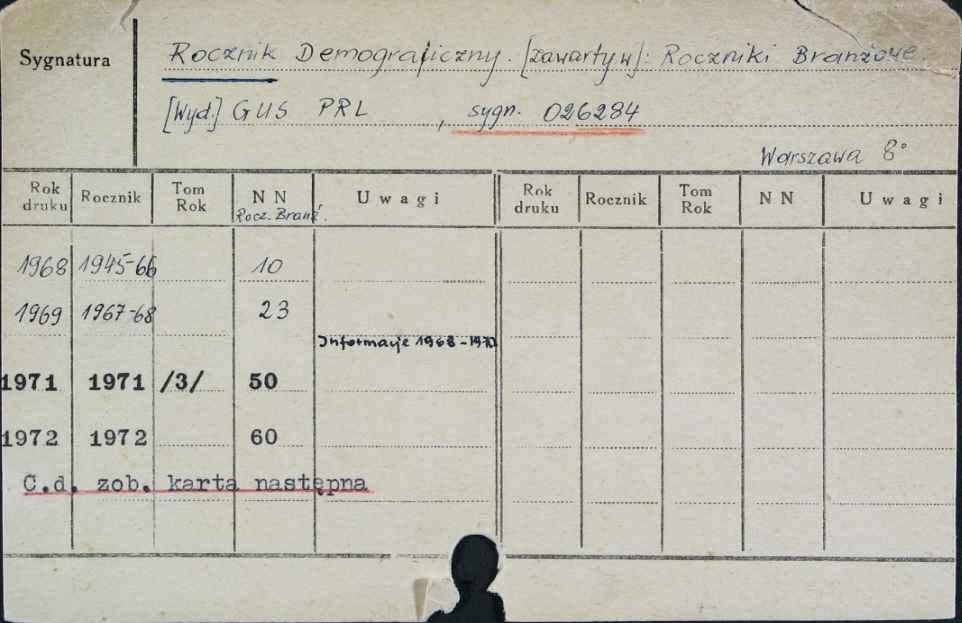 Sygnatura
Rocznik Demograficzny. [zawarty w]: Roczniki Branżowe.
[Wyd.] GUS PRL, sygn. 026284
Warszawa 8°
Rok druku Rocznik Tom Rok NN Rocz. Branż. Uwagi Rok druku Rocznik Tom Rok NN Uwagi
1968 1945-66 10
1969 1967-68 23
Informacje 1968-
1971 1971 /3/ 50
1972 1972 60
C.d. zob. karta następna